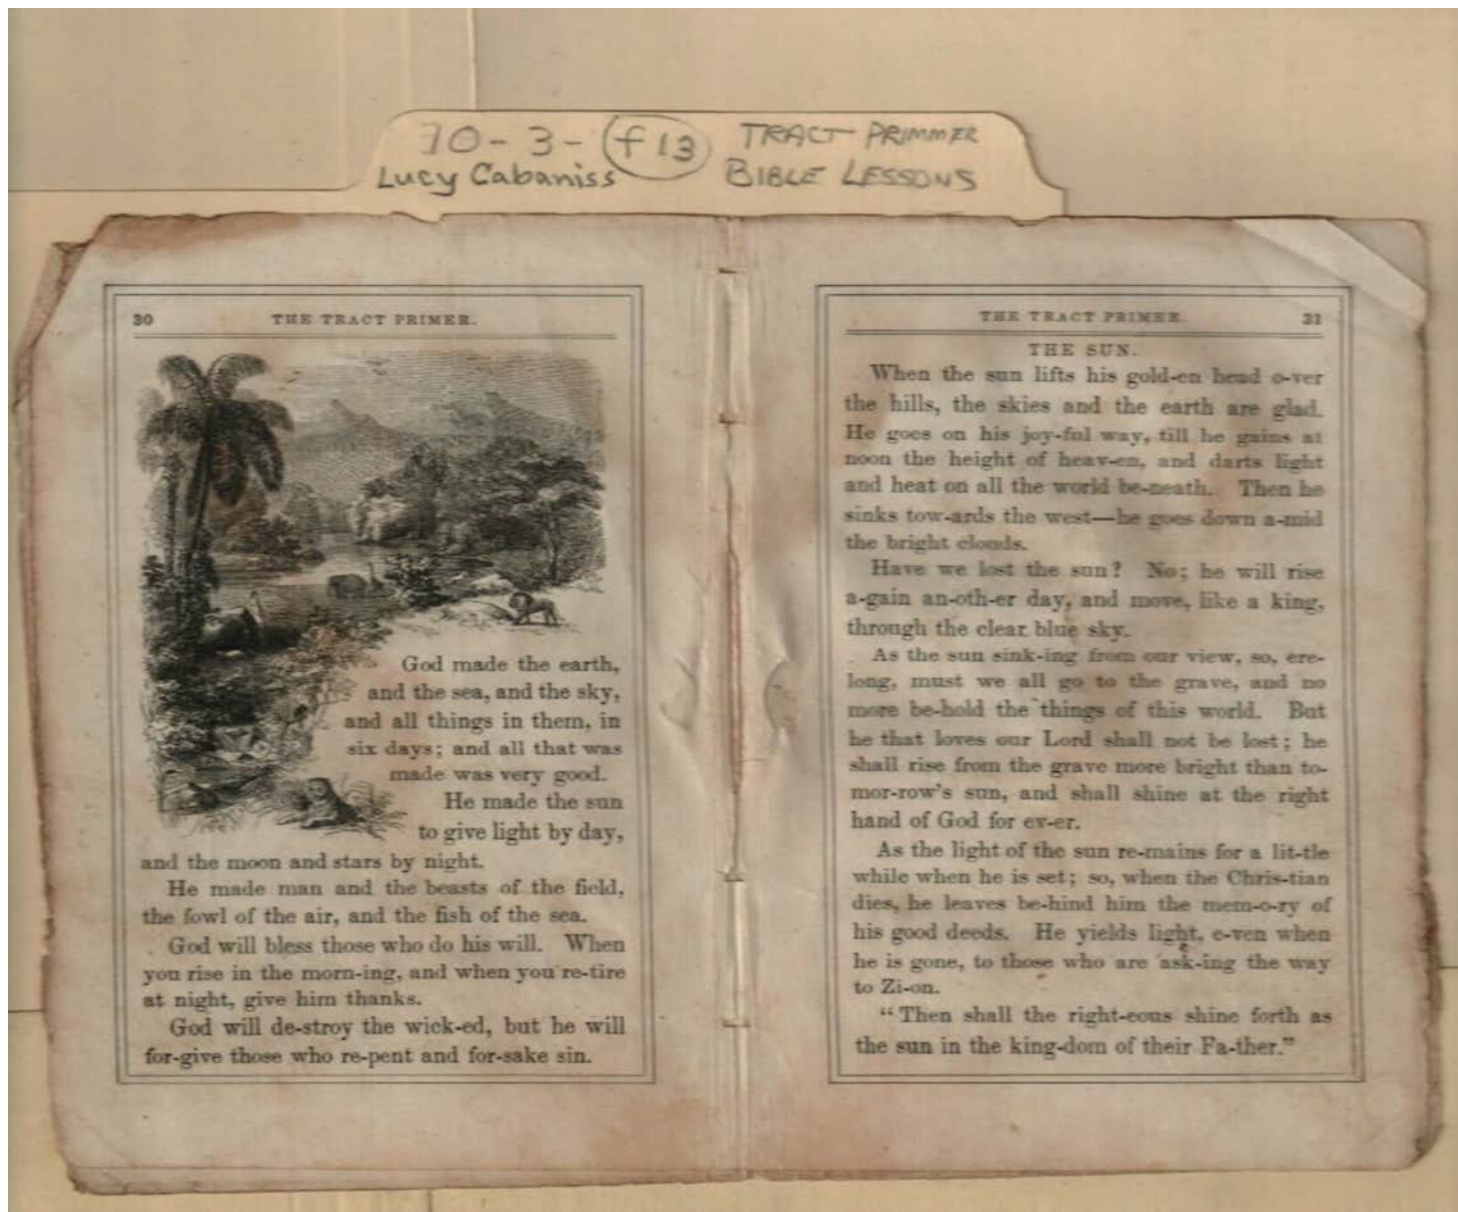 70-3-f13 TRACT PRIMMER
Lucy Cabaniss BIBLE LESSONS
30 THE TRACT PRIMER.
God made the earth,
and the sea, and the sky,
and all things in them, in
six days; and all that was
made was very good.
He made the sun
to give light by day,
and the moon and stars by night.
He made man and the beasts of the field,
the fowl of the air, and the fish of the sea.
God will bless those who do his will. When
you rise in the morn-ing, and when you re-tire
at night, give him thanks.
God will de-stroy the wick-ed, but he will
for-give those who re-pent and for-sake sin.
THE TRACT PRIMER. 31
THE SUN.
When the sun lifts his gold-en head o-ver
the hills, the skies and the earth are glad.
He goes on his joy-ful way, till he gains at
noon the height of heav-en, and darts light
and heat on all the world be-neath. Then he
sinks tow-ards the west—he goes down a-mid
the bright clouds.
Have we lost the sun? No; he will rise
a-gain an-oth-er day, and move, like a king,
through the clear blue sky.
As the sun sink-ing from our view, so, ere-
long, must we all go to the grave, and no
more be-hold the things of this world. But
he that loves our Lord shall not be lost; he
shall rise from the grave more bright than to-
mor-row's sun, and shall shine at the right
hand of God for ev-er.
As the light of the sun re-mains for a lit-tle
while when he is set; so, when the Chris-tian
dies, he leaves be-hind him the mem-o-ry of
his good deeds. He yields light, e-ven when
he is gone, to those who are ask-ing the way
to Zi-on.
"Then shall the right-eous shine forth as
the sun in the king-dom of their Fa-ther."